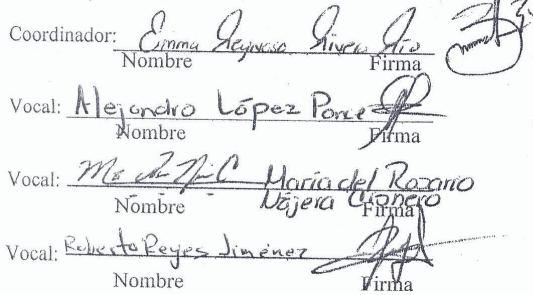 Coordinador: Emma Reynoso Rivera Río
Nombre Firma
Vocal: Alejandro López Ponce
Nombre Firma
Vocal: María del Rozario
Nájera
Nombre Firma
Vocal: Roberto Reyes Jiménez
Nombre Firma